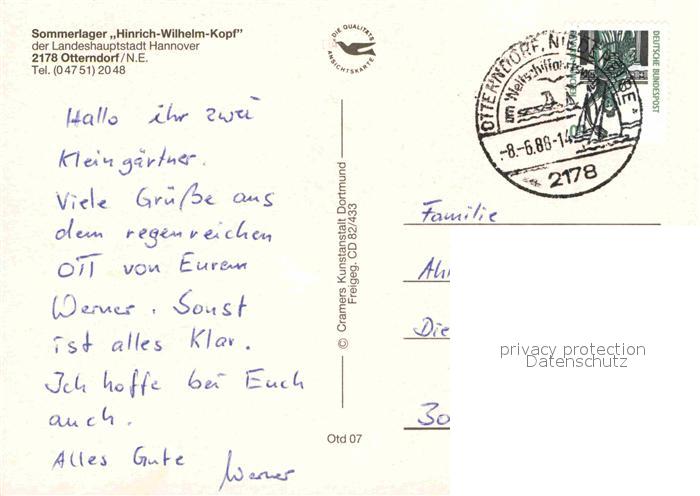 Sommerlager „Hinrich-Wilhelm-Kopf”
der Landeshauptstadt Hannover
2178 Otterndorf/N.E.
Tel. (0 47 51) 20 48
DIE QUALITÄTS
ANSICHTSKARTE
Hallo ihr zwei
Kleingärtner.
Viele Grüße aus
dem regenreichen
OTT von Eurem
Werner. Sonst
ist alles Klar.
Ich hoffe bei Euch
auch.
Alles Gute Werner
© Cramers Kunstanstalt Dortmund
Freigeg. CD 82/433
Otd 07
DEUTSCHE BUNDESPOST
OTTERNDORF, NIEDERELBE
am Weltschiffahrtsweg
-8.-6.88-14
2178
Familie
Ah
Die
30
privacy protection
Datenschutz